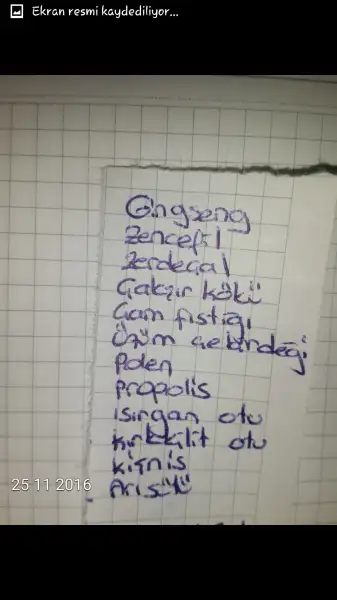 Ekran resmi kaydediliyor...
Gingseng
Zencefil
Zerdeçal
Çakşır kökü
Çam fıstığı
Üzüm çekirdeği
Polen
Propolis
ısırgan otu
kırkkilit otu
kişniş
Arısütü
25 11 2016